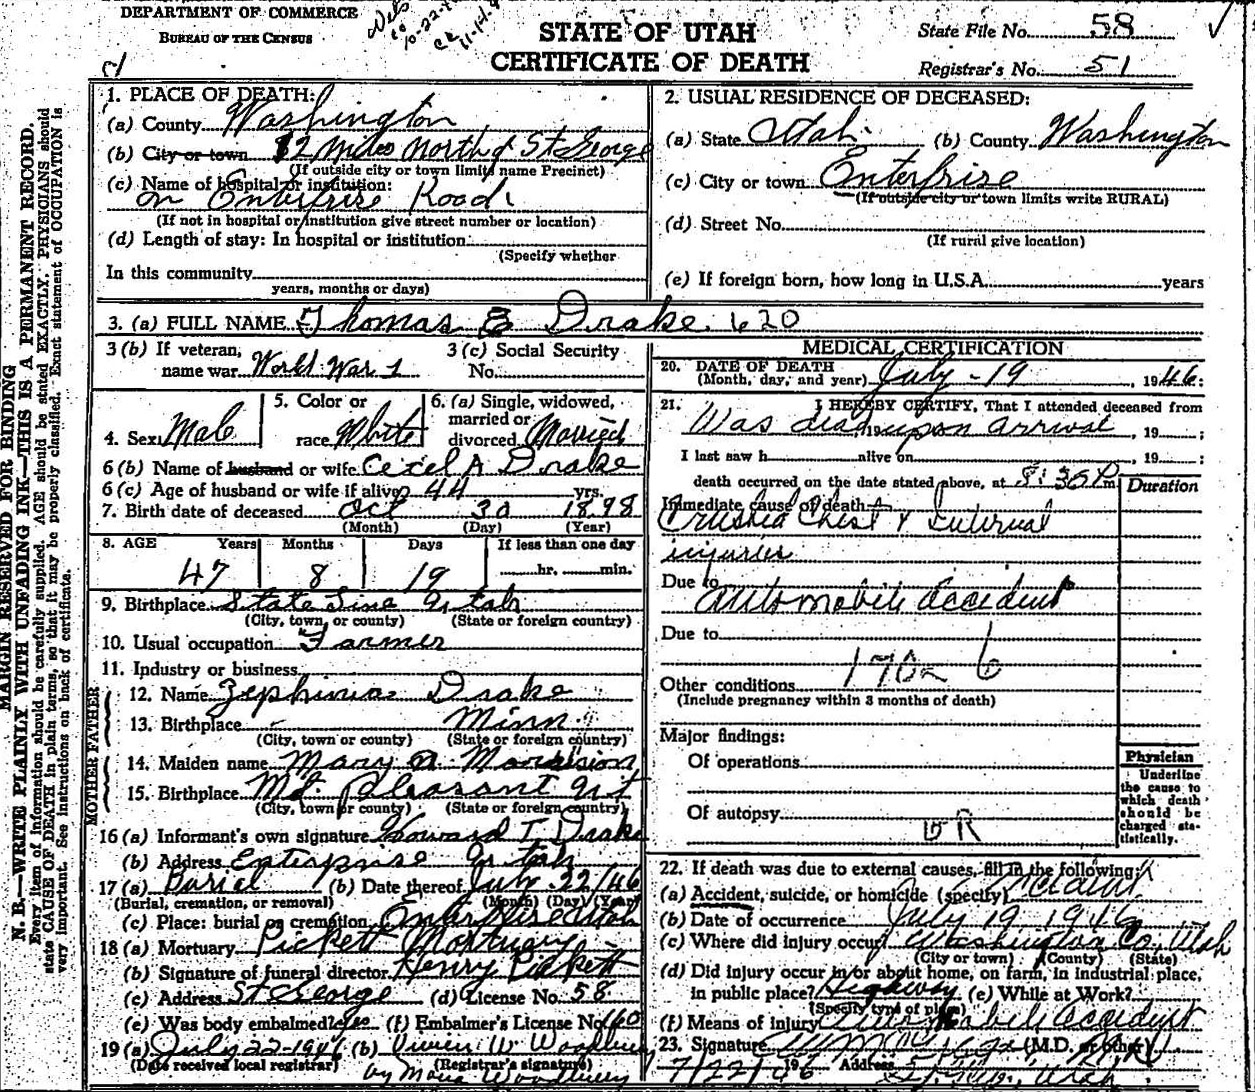 DEPARTMENT OF COMMERCE
BUREAU OF THE CENSUS
STATE OF UTAH
CERTIFICATE OF DEATH
State File No. 58
Registrar's No. 51
MARGIN RESERVED FOR BINDING
N. B.—WRITE PLAINLY WITH UNFADING INK—THIS IS A PERMANENT RECORD.
Every item of information should be carefully supplied. AGE should be stated EXACTLY. PHYSICIANS should
state CAUSE OF DEATH in plain terms, so that it may be properly classified. Exact statement of OCCUPATION is
very important. See instructions on back of certificate.
1. PLACE OF DEATH:
(a) County Washington
(b) City or town 12 Miles North of St George
(If outside city or town limits name Precinct)
(c) Name of hospital or institution:
on Enterprise Road
(If not in hospital or institution give street number or location)
(d) Length of stay: In hospital or institution
(Specify whether
In this community
years, months or days)
2. USUAL RESIDENCE OF DECEASED:
(a) State Utah (b) County Washington
(c) City or town Enterprise
(If outside city or town limits write RURAL)
(d) Street No.
(If rural give location)
(e) If foreign born, how long in U.S.A. years
3. (a) FULL NAME Thomas E Drake 620
3 (b) If veteran, name war World War 1
3 (c) Social Security No.
4. Sex Male
5. Color or race White
6. (a) Single, widowed, married or divorced Married
6 (b) Name of husband or wife A Drake
6 (c) Age of husband or wife if alive 44 yrs.
7. Birth date of deceased Oct 30 1898
(Month) (Day) (Year)
8. AGE Years Months Days If less than one day
47 8 19 hr. min.
9. Birthplace State Line Utah
(City, town, or county) (State or foreign country)
10. Usual occupation Farmer
11. Industry or business
FATHER
12. Name Drake
13. Birthplace - Minn.
(City, town or county) (State or foreign country)
MOTHER
14. Maiden name Mary A Morrision
15. Birthplace Mt. Pleasant Ut
(City, town or county) (State or foreign country)
16 (a) Informant's own signature Howard T Drake
(b) Address Enterprise Utah
17 (a) Burial (b) Date thereof 22/46
(Burial, cremation, or removal) (Month) (Day) (Year)
(c) Place: burial or cremation Enterprise Utah
18 (a) Mortuary Pickett Mortuary
(b) Signature of funeral director Henry Pickett
(c) Address St George (d) License No. 58
(e) Was body embalmed? Yes (f) Embalmer's License No. 160
19 (a) July 22-1946 (b) W Woodbury
(Date received local registrar) (Registrar's signature)
by Woodbury
MEDICAL CERTIFICATION
20. DATE OF DEATH
(Month, day, and year) July - 19, 1946:
21. I HEREBY CERTIFY, That I attended deceased from
Was dead upon arrival, 19 ;
I last saw h alive on , 19 ;
death occurred on the date stated above, at 8:36 P m
Duration
Immediate cause of death
Crushed Chest & Internal
injuries
Due to
automobile accident
Due to
170 6
Other conditions
(Include pregnancy within 3 months of death)
Major findings:
Of operations
Of autopsy
Physician
Underline the cause to which death should be charged statistically.
22. If death was due to external causes, fill in the following:
(a) Accident, suicide, or homicide (specify) Accident
(b) Date of occurrence July 19 1946
(c) Where did injury occur? Washington Co, Utah
(City or town) (County) (State)
(d) Did injury occur in or about home, on farm, in industrial place,
in public place? Highway (e) While at Work?
(Specify type of place)
(f) Means of injury Automobile Accident
23. Signature (M.D. or other)
7/22/ Address Utah